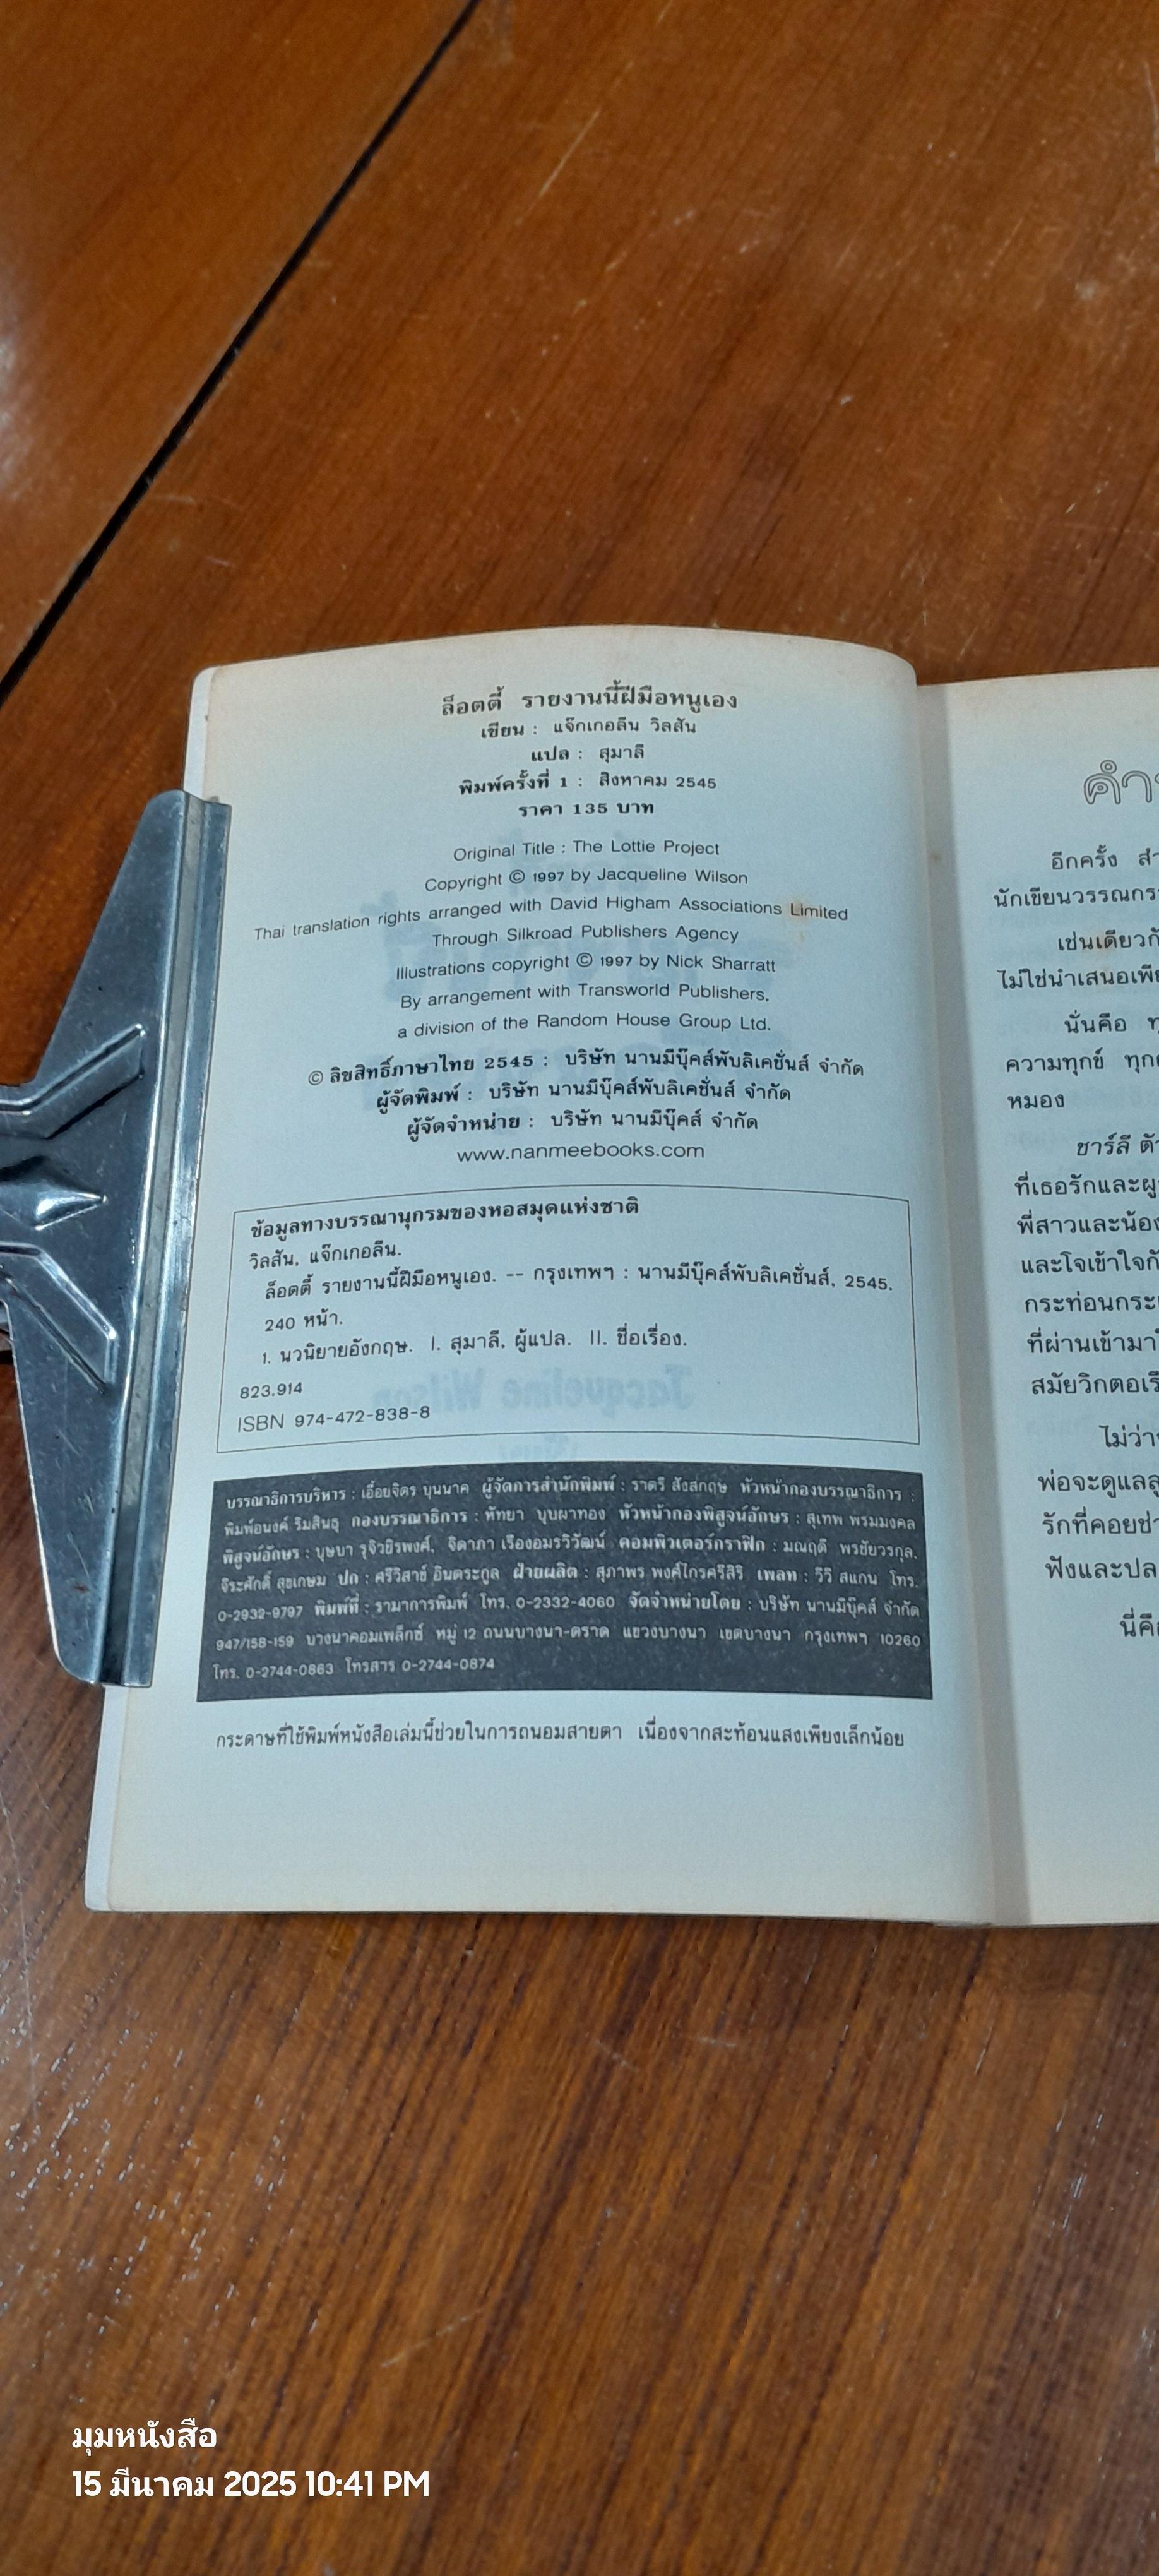 ล็อตตี้ รายงานนี้ฝีมือหนูเอง
เขียน : แจ๊กเกอลีน วิลสัน
แปล : สุมาลี
พิมพ์ครั้งที่ 1 : สิงหาคม 2545
ราคา 135 บาท
Original Title : The Lottie Project
Copyright © 1997 by Jacqueline Wilson
Thai translation rights arranged with David Higham Associations Limited
Through Silkroad Publishers Agency
Illustrations copyright © 1997 by Nick Sharratt
By arrangement with Transworld Publishers,
a division of the Random House Group Ltd.
© ลิขสิทธิ์ภาษาไทย 2545 : บริษัท นานมีบุ๊คส์พับลิเคชั่นส์ จำกัด
ผู้จัดพิมพ์ : บริษัท นานมีบุ๊คส์พับลิเคชั่นส์ จำกัด
ผู้จัดจำหน่าย : บริษัท นานมีบุ๊คส์ จำกัด
www.nanmeebooks.com
ข้อมูลทางบรรณานุกรมของหอสมุดแห่งชาติ
วิลสัน, แจ๊กเกอลีน.
ล็อตตี้ รายงานนี้ฝีมือหนูเอง. -- กรุงเทพฯ : นานมีบุ๊คส์พับลิเคชั่นส์, 2545.
240 หน้า.
1. นวนิยายอังกฤษ. I. สุมาลี, ผู้แปล. II. ชื่อเรื่อง.
823.914
ISBN 974-472-838-8
บรรณาธิการบริหาร : เอื้อยจิตร บุนนาค ผู้จัดการสำนักพิมพ์ : ราตรี สังสกฤษ หัวหน้ากองบรรณาธิการ :
พิมพ์อนงค์ ริมสินธุ กองบรรณาธิการ : หัทยา บุบผาทอง หัวหน้ากองพิสูจน์อักษร : สุเทพ พรมมงคล
พิสูจน์อักษร : บุษบา รุจิวชิรพงศ์, จิดาภา เรืองอมรวิวัฒน์ คอมพิวเตอร์กราฟิก : มณฤดี พรชัยวรกุล,
จีระศักดิ์ สุขเกษม ปก : ศรีวิสาข์ อินดระกูล ฝ่ายผลิต : สุภาพร พงศ์ไกรศรีสิริ เพลท : วีวี สแกน โทร.
0-2932-9797 พิมพ์ที่ : รามาการพิมพ์ โทร. 0-2332-4060 จัดจำหน่ายโดย : บริษัท นานมีบุ๊คส์ จำกัด
947/158-159 บางนาคอมเพล็กซ์ หมู่ 12 ถนนบางนา-ตราด แขวงบางนา เขตบางนา กรุงเทพฯ 10260
โทร. 0-2744-0863 โทรสาร 0-2744-0874
กระดาษที่ใช้พิมพ์หนังสือเล่มนี้ช่วยในการถนอมสายตา เนื่องจากสะท้อนแสงเพียงเล็กน้อย
อีกครั้ง
นักเขียนวรรณกร
เช่นเดียวกั
ไม่ใช่นำเสนอเพี
นั่นคือ
ความทุกข์
หมอง
ชาร์ลี
ที่เธอรักและผู
พี่สาวและน้อง
และโจเข้าใจกั
กระท่อนกระ
ที่ผ่านเข้ามา
สมัยวิกตอเรี
ไม่ว่า
พ่อจะดูแลลู
รักที่คอยช่
ฟังและปล
นี่คือ
มุมหนังสือ
15 มีนาคม 2025 10:41 PM